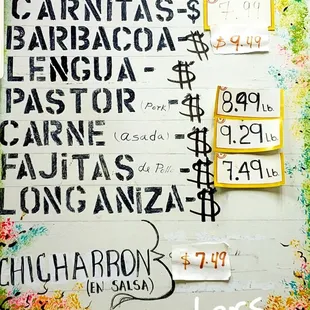 CARNITAS-$ 7.99
BARBACOA-$ $9.49
LENGUA- $
PASTOR (Pork) -$ 8.49 Lb.
CARNE (asada) -$ 9.29 Lb.
FAJITAS de Pollo -$ 7.49 Lb.
LONGANIZA-$
CHICHARRON $7.49
(EN SALSA)